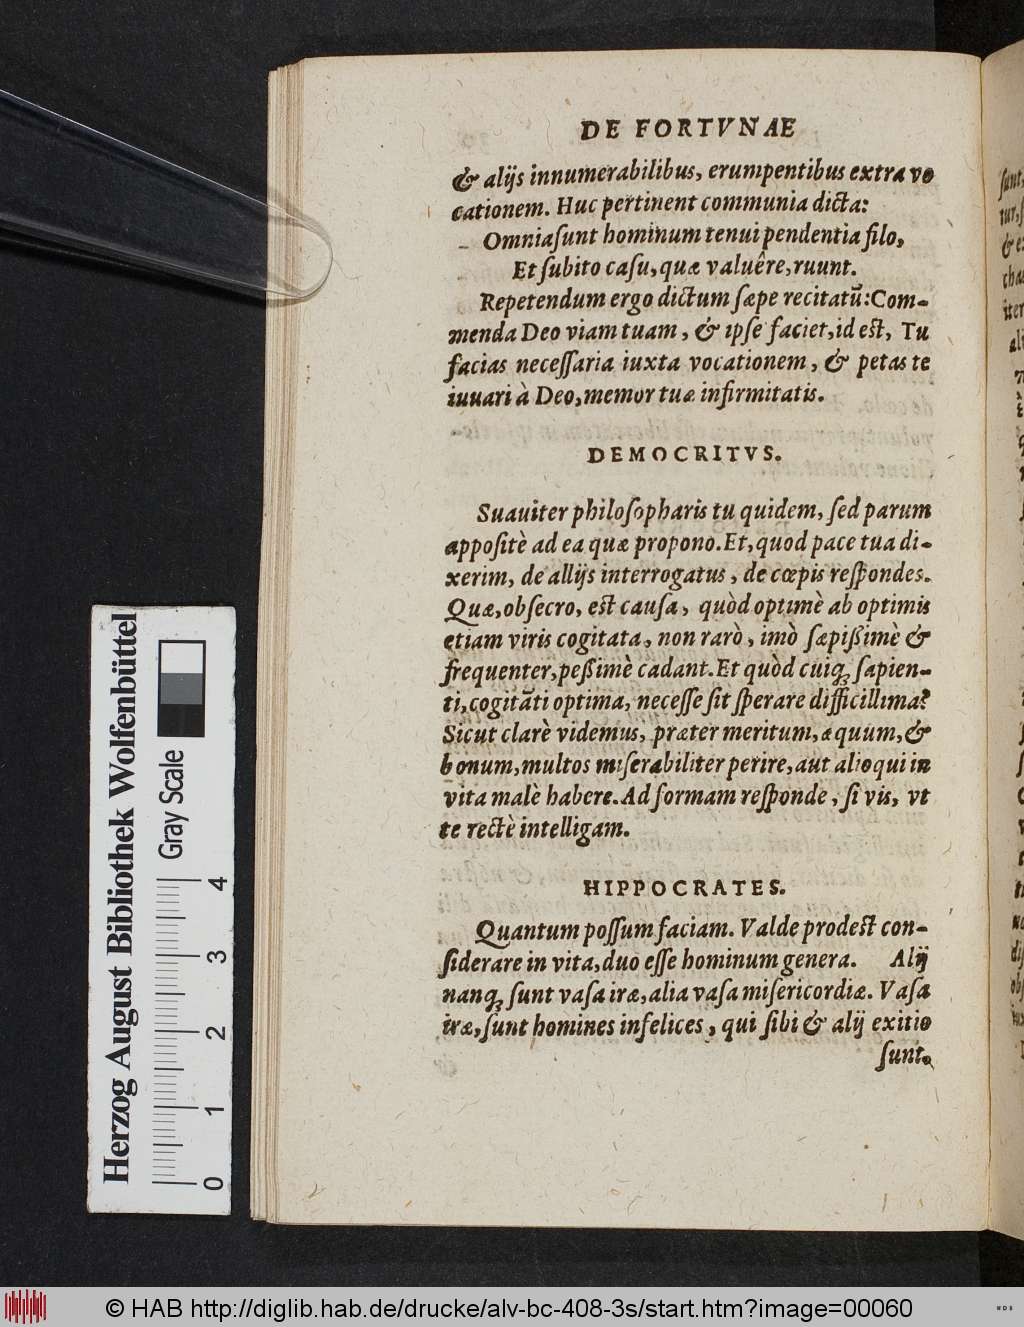 DE FORTVNAE
& alijs innumerabilibus, erumpentibus extra vo
cationem. Huc pertinent communia dicta:
Omnia ſunt hominum tenui pendentia filo,
Et ſubito caſu, quæ valuêre, ruunt.
Repetendum ergo dictum ſæpe recitatū: Com-
menda Deo viam tuam, & ipſe faciet, id est, Tu
facias neceſſaria iuxta vocationem, & petas te
iuuari à Deo, memor tuæ infirmitatis.
DEMOCRITVS.
Suauiter philoſopharis tu quidem, ſed parum
appoſitè ad ea quæ propono. Et, quod pace tua di-
xerim, de allijs interrogatus, de cœpis reſpondes.
Quæ, obſecro, est cauſa, quòd optimè ab optimis
etiam viris cogitata, non rarò, imò ſæpißimè &
frequenter, peßimè cadant. Et quòd cuiq; ſapien-
ti, cogitāti optima, neceſſe ſit ſperare difficillima?
Sicut clarè videmus, præter meritum, æquum, &
bonum, multos miſerabiliter perire, aut alioqui in
vita malè habere. Ad formam reſponde, ſi vis, vt
te rectè intelligam.
HIPPOCRATES.
Quantum poſſum faciam. Valde prodest con-
ſiderare in vita, duo eſſe hominum genera. Alij
nanq; ſunt vaſa iræ, alia vaſa miſericordiæ. Vaſa
iræ, ſunt homines infelices, qui ſibi & alij exitio
ſunt.
Herzog August Bibliothek Wolfenbüttel
Gray Scale
0 1 2 3 4
© HAB http://diglib.hab.de/drucke/alv-bc-408-3s/start.htm?image=00060